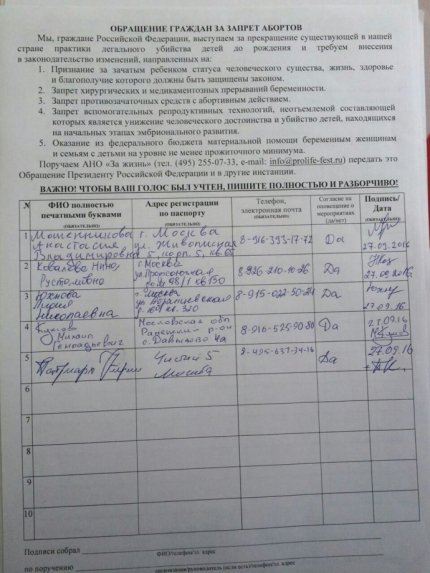 ОБРАЩЕНИЕ ГРАЖДАН ЗА ЗАПРЕТ АБОРТОВ
Мы, граждане Российской Федерации, выступаем за прекращение существующей в нашей
стране практики легального убийства детей до рождения и требуем внесения
в законодательство изменений, направленных на:
1. Признание за зачатым ребенком статуса человеческого существа, жизнь, здоровье
и благополучие которого должны быть защищены законом.
2. Запрет хирургических и медикаментозных прерываний беременности.
3. Запрет противозачаточных средств с абортивным действием.
4. Запрет вспомогательных репродуктивных технологий, неотъемлемой составляющей
которых является унижение человеческого достоинства и убийство детей, находящихся
на начальных этапах эмбрионального развития.
5. Оказание из федерального бюджета материальной помощи беременным женщинам
и семьям с детьми на уровне не менее прожиточного минимума.
Поручаем АНО «За жизнь» (тел. (495) 255-07-33, e-mail: info@prolife-fest.ru) передать это
Обращение Президенту Российской Федерации и в другие инстанции.
ВАЖНО! ЧТОБЫ ВАШ ГОЛОС БЫЛ УЧТЕН, ПИШИТЕ ПОЛНОСТЬЮ И РАЗБОРЧИВО!
N ФИО полностью печатными буквами (ОБЯЗАТЕЛЬНО) Адрес регистрации по паспорту (ОБЯЗАТЕЛЬНО) Телефон, электронная почта (ОБЯЗАТЕЛЬНО) Согласие на оповещение о мероприятиях (да/нет) Подпись/Дата (ОБЯЗАТЕЛЬНО)
1 Мошенникова г. Москва
Анастасия ул. Живописная 8-916-393-17-72 Да
Владимировна 5, 27.09.2016
2 Ковалева Нина г Москва 8-926-210-10-26 Да
27.09.2016
3 г. Москва 8-915-022-50-24 Да
Николаевна 27.09.16
4 Московская обл 8-916-525-90-80 Да 27.09.16
Михаил Раменский р-он
Геннадьевич
5 Патриарх Кирилл Чистый 5 8-495-637-34-16 Да 27.09.16
Москва
6
7
8
9
10
Подписи собрал
ФИО/телефон/эл. адрес
по поручению